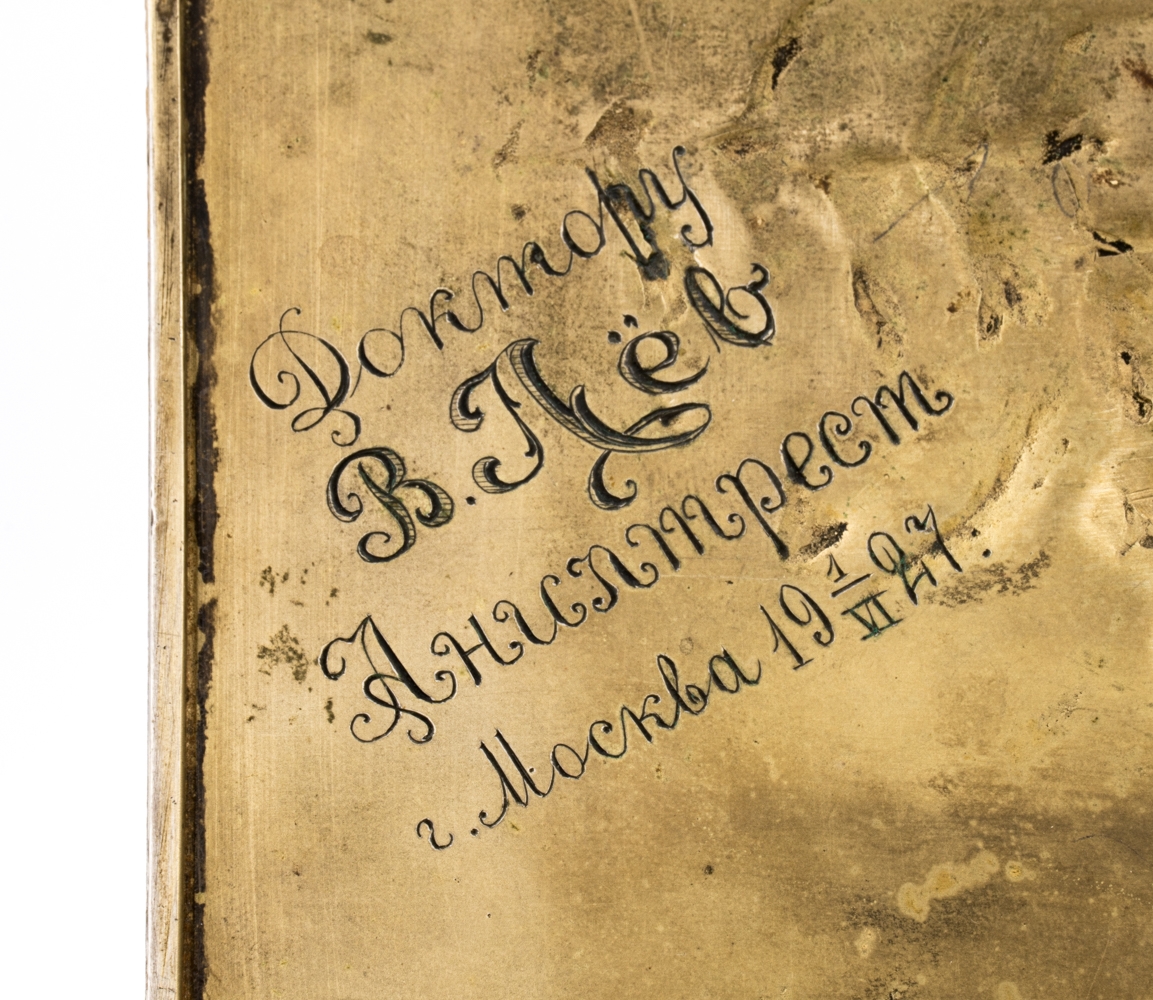 Доктору
В. Лёв
Анилтрест
г. Москва 19 1/VI 27.